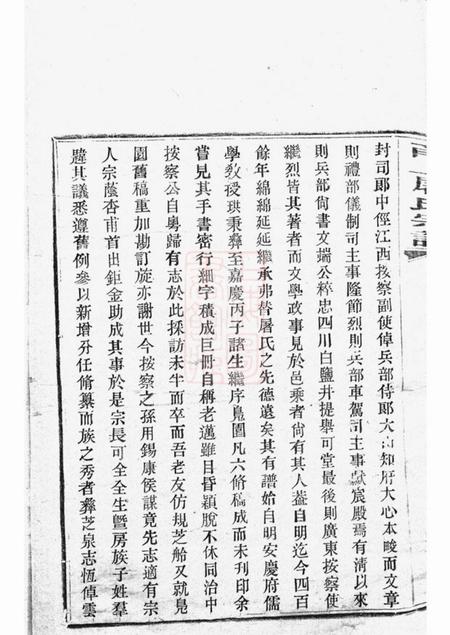 封司郎中倥江西按察副使倬兵部侍郎大山知府大心本畯而文章
則禮部儀制司主事隆節烈則兵部車駕司主事獻宸殿焉有清以來
則兵部尙書文端公粹忠四川白鹽井提舉可堂最後則廣東按察使
繼烈皆其著者而文學政事見於邑乘者尙有其人蓋自明迄今四百
餘年綿綿延延繼承弗替屠氏之先德遠矣其有譜始自明安慶府儒
學敎授珙秉彝至嘉慶丙子諸生繼序鳧園凡六脩稿成而未刊印余
嘗見其手書密行細字積成巨冊自稱老邁雖目昏穎脫不休同治中
按察公自粵歸有志於此採訪未半而卒而吾老友仿規芝船又就鳧
園舊稿重加勘訂旋亦謝世今按察之孫用錫康侯謀竟先志適有宗
人宗蔭杏甫首出鉅金助成其事於是宗長可全全生曁房族子姓羣
韙其議悉遵舊例參以新增分任脩纂而族之秀者彝芝泉志恆倬雲